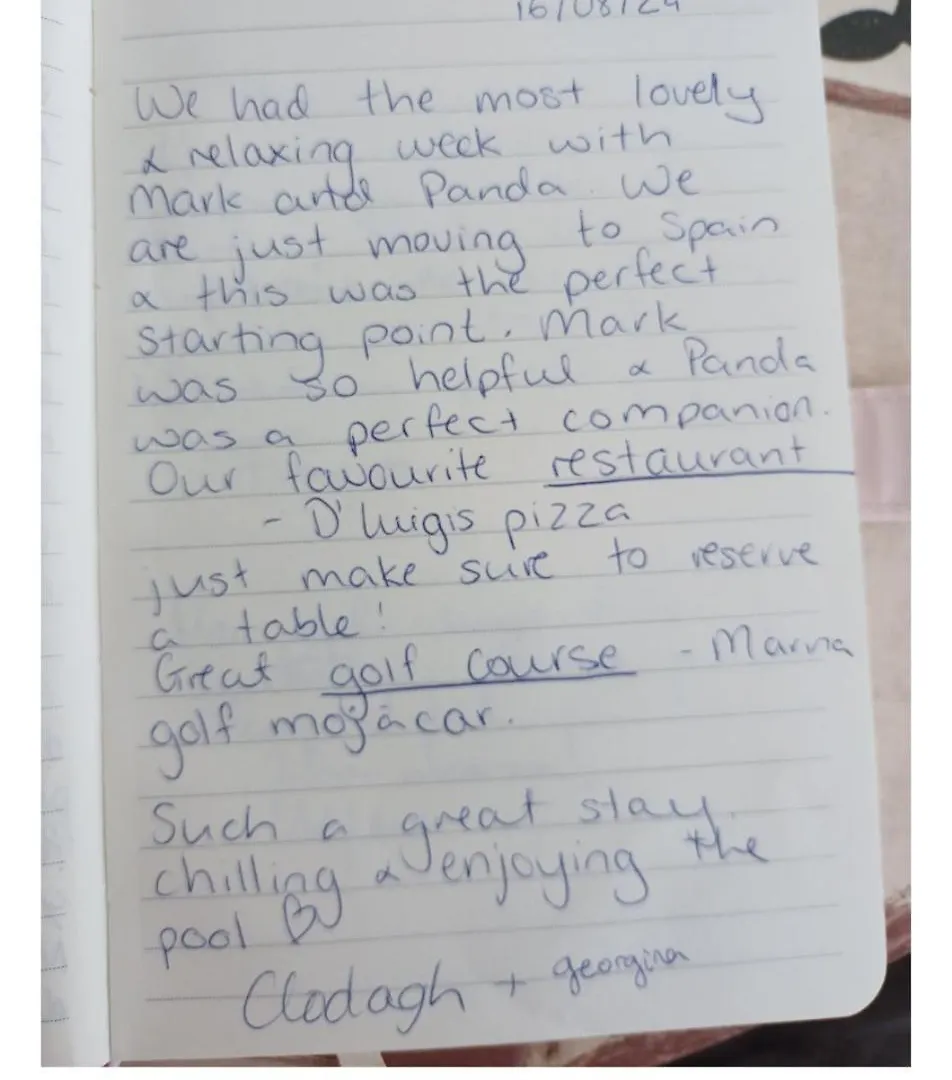 16/08/24
We had the most lovely
& relaxing week with
Mark and Panda. We
are just moving to Spain
& this was the perfect
starting point. Mark
was so helpful & Panda
was a perfect companion.
Our favourite restaurant
- D'luigis pizza
just make sure to reserve
a table!
Great golf course - Marina
golf mojácar.
Such a great stay
chilling & enjoying the
pool
Clodagh + georgina